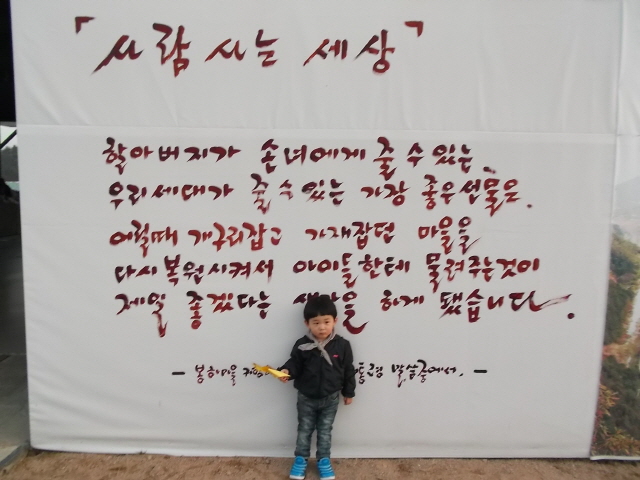 「사람 사는 세상」
할아버지가 손녀에게 줄 수 있는,
우리세대가 줄 수 있는 가장 좋은 선물은.
어릴때 개구리잡고 가재잡던 마을을
다시 복원시켜서 아이들한테 물려주는것이
제일 좋겠다는 하게 됐습니다.
- 봉하마을 말씀중에서. -